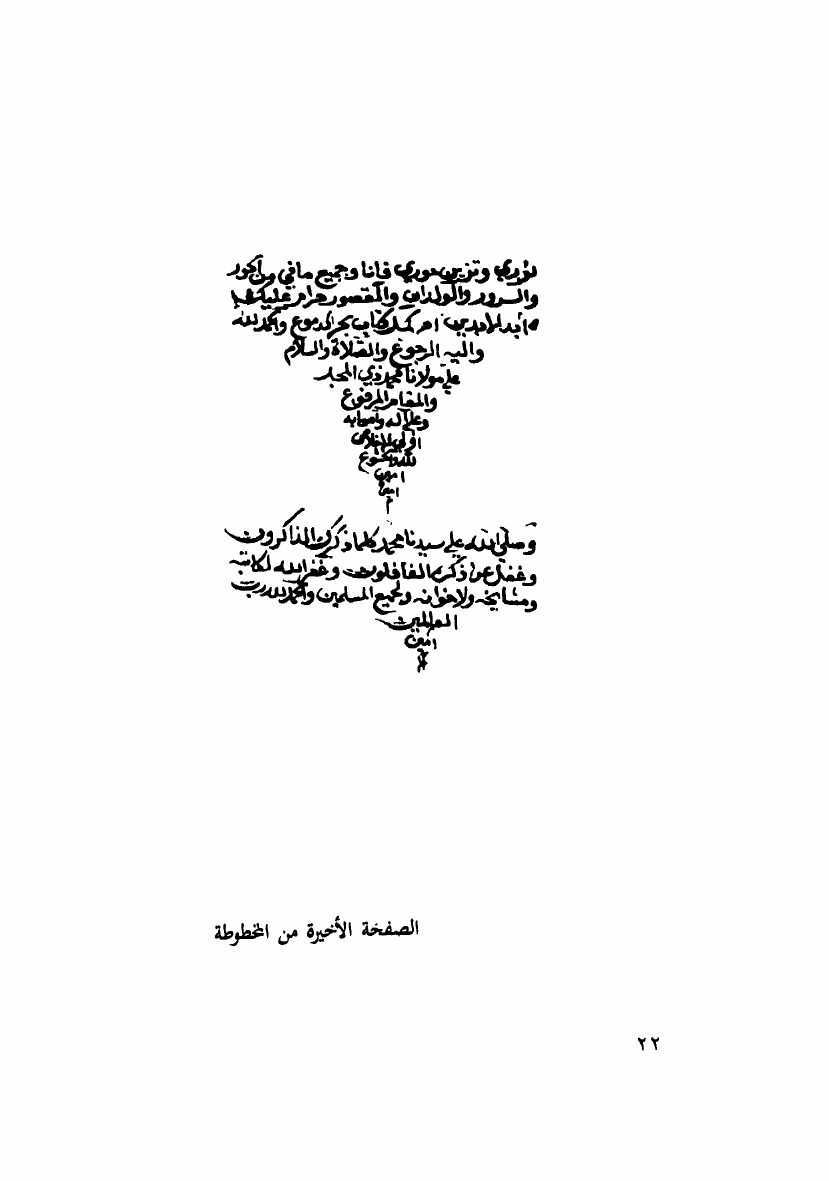 نوري وتزين حوري فانا وجميع ما في من الحور
والسرور والولدان والقصور حرام عليك
أبد الابدين اه كمل كتاب بحر الدموع والحمد لله
واليه الرجوع والصلاة والسلام
على مولانا محمد ذي المجد
والمقام المرفوع
وعلى اله واصحابه
اولي الاخلاص
لله والخشوع
امين
امين
م
وصلى الله على سيدنا محمد كلما ذكرك الذاكرون
وغفل عن ذكره الغافلون وغفر الله لكاتبه
ومشايخه ولاخوانه ولجميع المسلمين والحمد لله رب
العالمين
امين
م
الصفخة الأخيرة من المخطوطة
٢٢